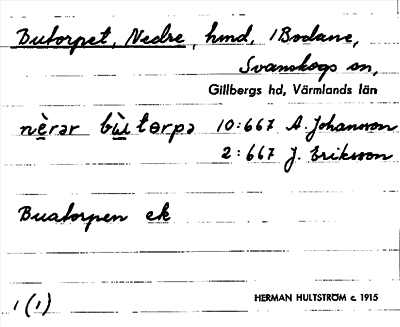 Butorpet, Nedre, hmd, i Bodane,
Svanskogs sn,
Gillbergs hd, Värmlands län
nèrar bùtorpa 10:667 A. Johansson
2:667 J. Eriksson
Buatorpen ek
1 (1)
HERMAN HULTSTRÖM c. 1915